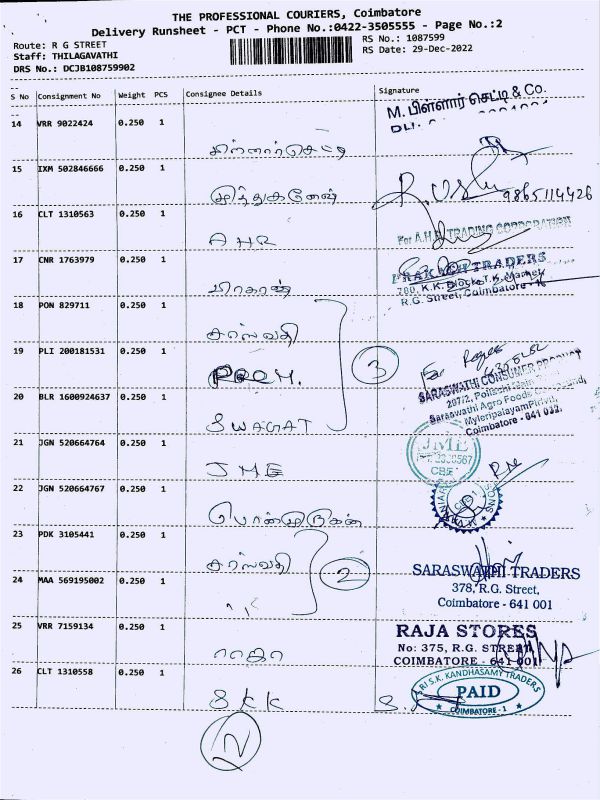 THE PROFESSIONAL COURIERS, Coimbatore
Delivery Runsheet - PCT - Phone No.:0422-3505555 - Page No.:2
Route: R G STREET
RS No.: 1087599
Staff: THILAGAVATHI
RS Date: 29-Dec-2022
DRS No.: DCJB108759902
S No Consignment No Weight PCS Consignee Details Signature
M. பிள்ளார் செட்டி & Co.
14 VRR 9022424 0.250 1
15 IXM 502846666 0.250 1
9865114426
16 CLT 1310563 0.250 1 AHR
For A.H.R. TRADING CORPORATION
17 CNR 1763979 0.250 1
PRAKASH TRADERS
700, K.K. Block, T.K. Market,
R.G. Street, Coimbatore
18 PON 829711 0.250 1 சரஸ்வதி
19 PLI 200181531 0.250 1
3
SARASWATHI CONSUMER PRODUCT
207/2, Pollachi Main
Saraswathi Agro Foods
Myleripalayam Pirivu,
Coimbatore - 641 032.
20 BLR 1600924637 0.250 1 SWAGAT
21 JGN 520664764 0.250 1 JME
JME
CBE
22 JGN 520664767 0.250 1 பொன்முருகன்
23 PDK 3105441 0.250 1 சரஸ்வதி
2
24 MAA 569195002 0.250 1 "K
SARASWATHI TRADERS
378, R.G. Street,
Coimbatore - 641 001
25 VRR 7159134 0.250 1 ராஜா
RAJA STORES
No: 375, R.G. STREET
COIMBATORE - 641 001
26 CLT 1310558 0.250 1 SKK
SRI S.K. KANDHASAMY TRADERS
PAID
COIMBATORE - 1